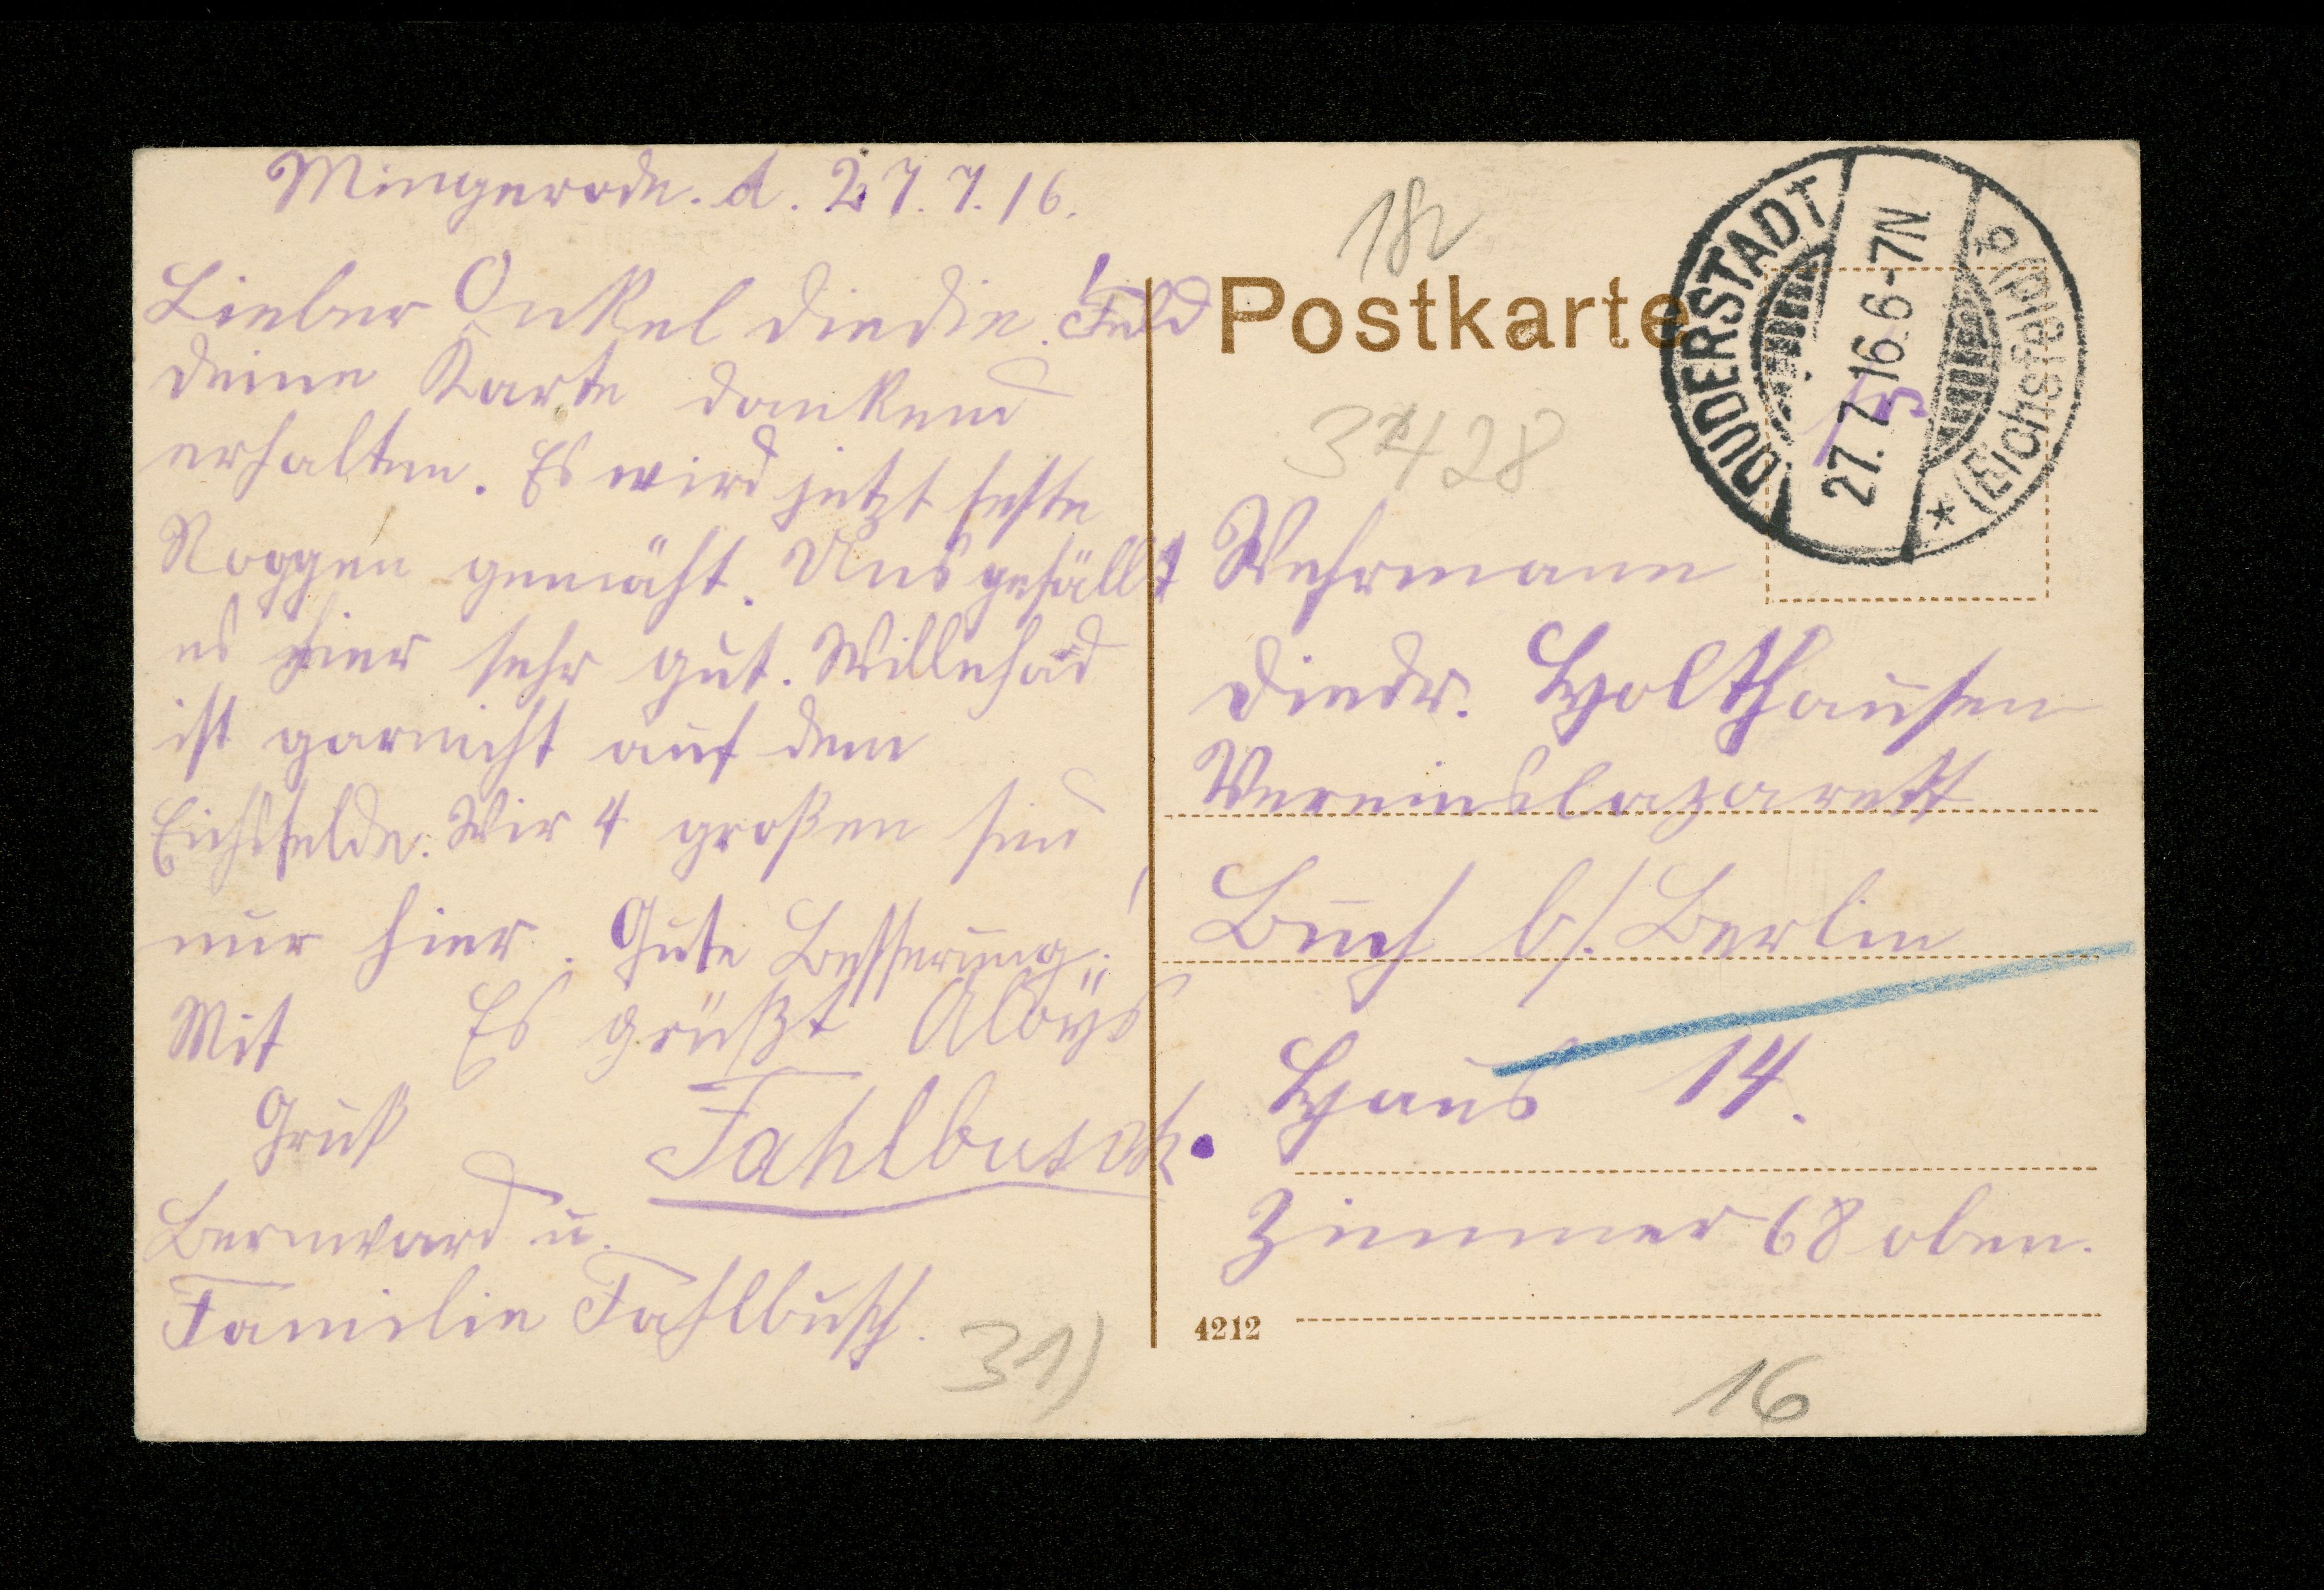 Mingerode. d. 27.7.16.
Lieber Onkel Diedie!
deine Karte dankend
erhalten. Es wird jetzt feste
Roggen gemäht. Uns gefällt
es hier sehr gut. Willehad
ist garnicht auf dem
Eichsfelde. Wir 4 großen sind
nur hier. Gute Besserung!
Mit Es grüßt Aloys
Gruß Fahlbusch.
Bernward u.
Familie Fahlbusch.
31)
182
Feld
Postkarte
DUDERSTADT
27.7.16.6-7N
* (Eichsfeld) b
Wehrmann
Diedr. Holthausen
Vereinslazarett
Buch b/. Berlin
Haus 14.
Zimmer 68 oben.
4212
16